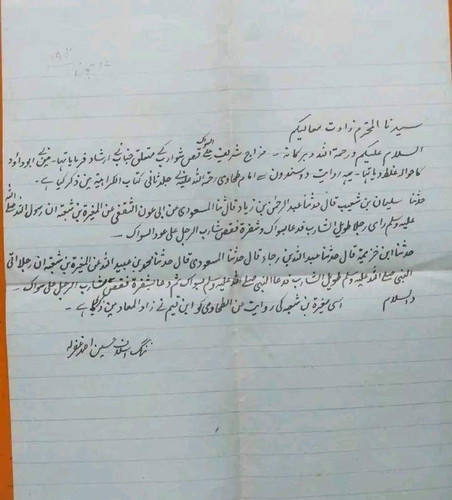 سیدنا المحترم زادت معالیکم
السلام علیکم ورحمۃ اللہ وبرکاتہ - مزاج شریف قص شوارب کے متعلق جناب نے ارشاد فرمایا تھا - میں نے ابوداؤد
کا حوالہ غلط دیا تھا - یہ روایت دو سندوں سے امام طحاوی رحمۃ اللہ علیہ نے جلد ثانی کتاب الکراہیۃ میں ذکر کیا ہے -
حدثنا سلیمان بن شعیب قال حدثنا عبد الرحمٰن بن زیاد قال ثنا المسعودی عن ابی عون الثقفی عن المغیرۃ بن شعبہ ان رسول اللہ صلی اللہ
علیہ وسلم رای رجلا طویل الشارب فدعا بسواک وشفرۃ فقص شارب الرجل علی عود السواک -
حدثنا ابن خزیمۃ قال حدثنا عبد اللہ بن رجاء قال حدثنا المسعودی قال حدثنا محمد بن عبید اللہ عن المغیرۃ بن شعبہ ان رجلا اتی
النبی صلی اللہ علیہ وسلم طویل الشارب فدعا النبی صلی اللہ علیہ وسلم بسواک ثم دعا بشفرۃ فقص شارب الرجل علی سواک -
اسی مغیرۃ بن شعبہ کی روایت من الطحاوی کو ابن قیم نے زاد المعاد میں ذکر کیا ہے -
والسلام
ننگ اسلاف حسین احمد غفرلہ